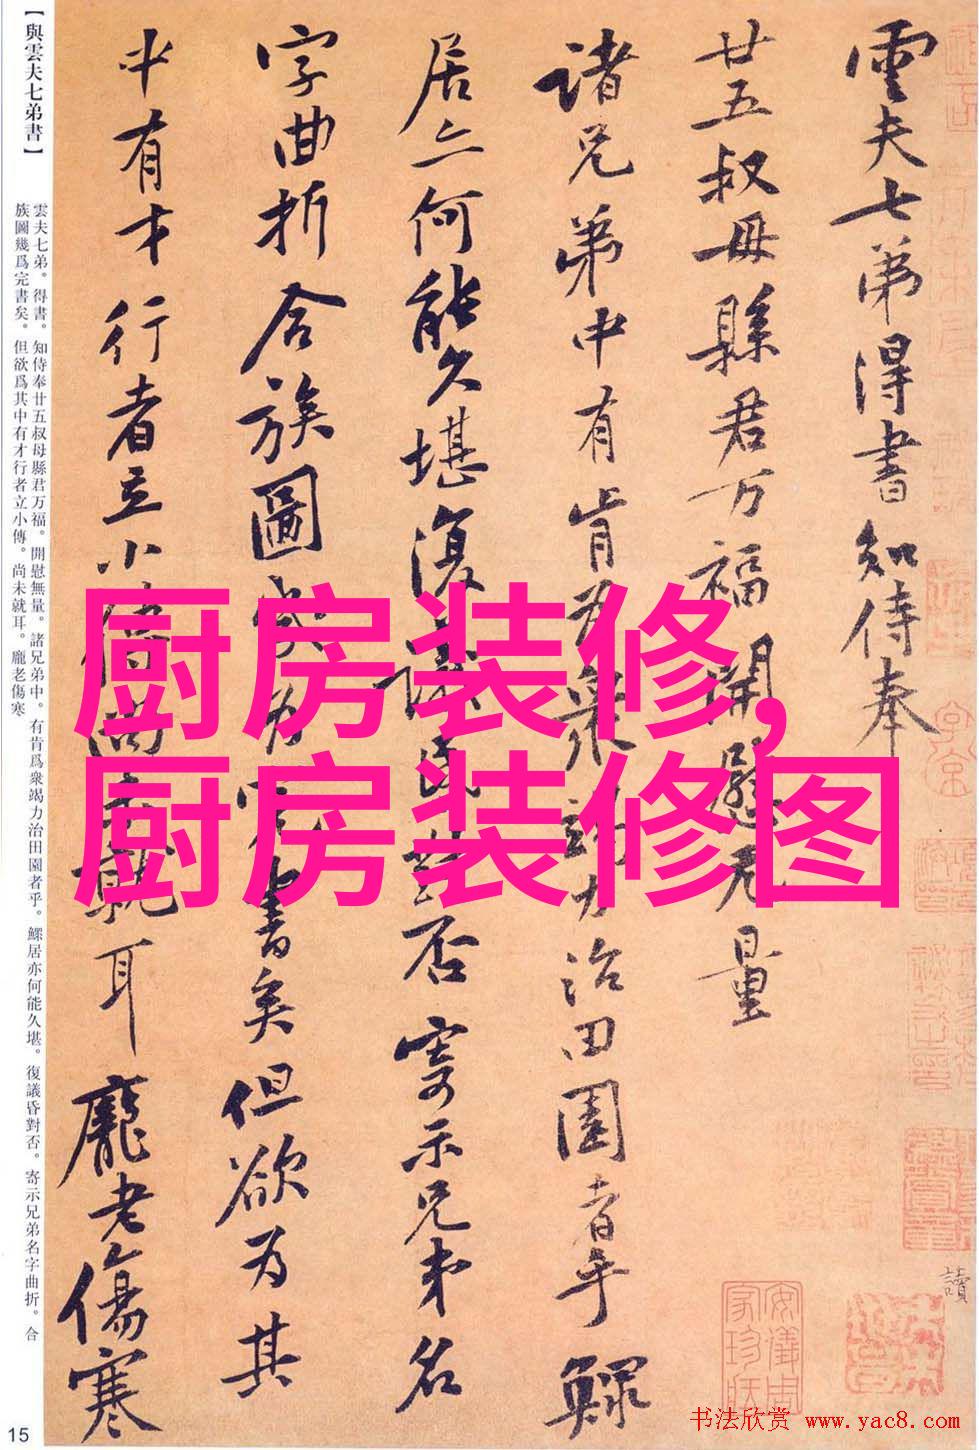 雲夫七弟得書知侍奉
廿五叔母縣君万福開慰无量
諸兄弟中有肯为衆竭力治田園者乎鰥
居亦何能久堪復議昏對否寄示兄弟名
字曲折合族圖幾为完書矣但欲为其
中有才行者立小傳尚未就耳龐老傷寒
讀
安儀周家珍藏
厨房装修,
厨房装修图
【與雲夫七弟書】
雲夫七弟。得書。知侍奉廿五叔母縣君万福。開慰無量。諸兄弟中。有肯爲衆竭力治田園者乎。鰥居亦何能久堪。復議昏對否。寄示兄弟名字曲折。合
族圖幾爲完書矣。但欲爲其中有才行者立小傳。尚未就耳。龐老傷寒
15
书法欣赏 www.yac8.com